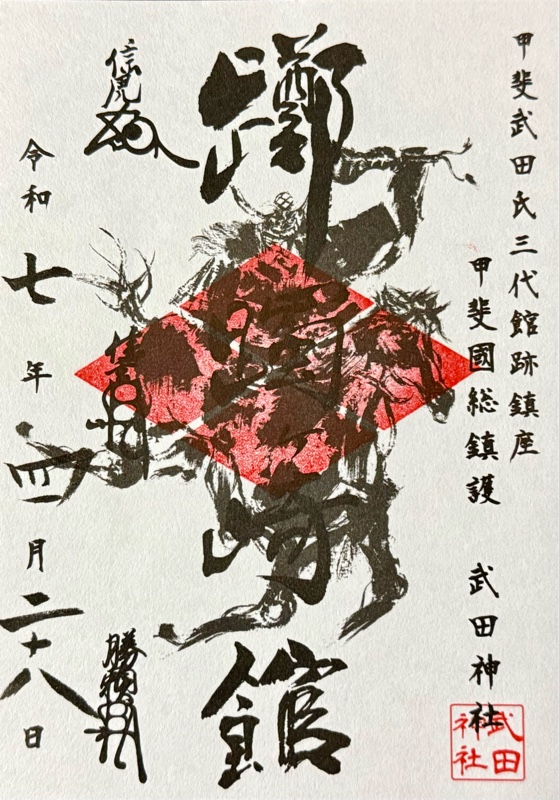 甲斐武田氏三代館跡鎮座
甲斐國総鎮護 武田神社
武田神社
躑躅崎館
信虎
勝頼
令和七年四月二十八日